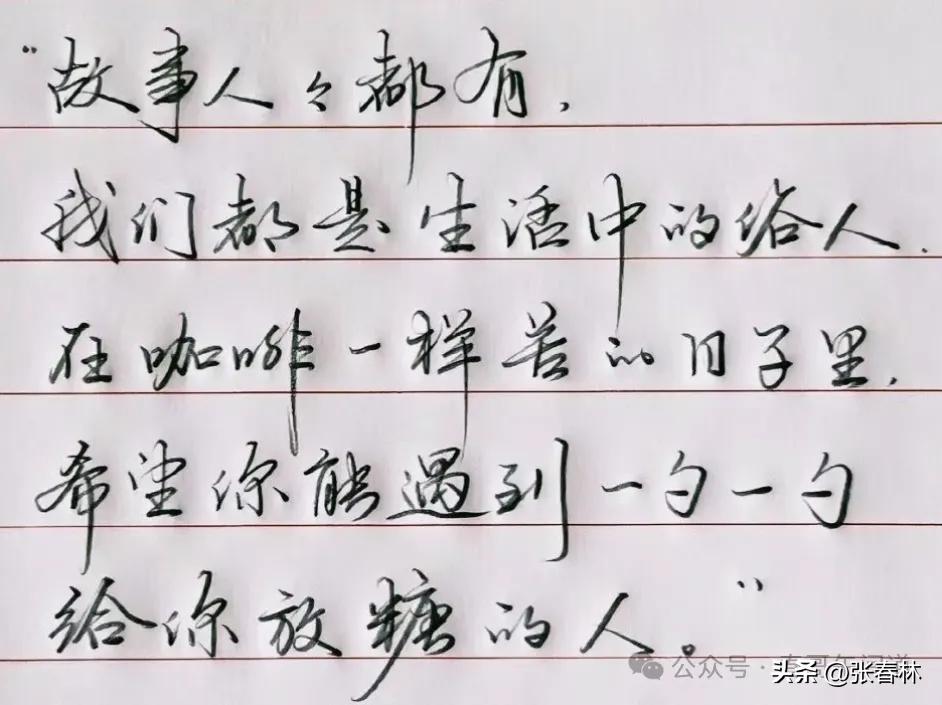 “故事人々都有，
我们都是生活中的俗人.
在咖啡一样苦的日子里，
希望你能遇到一勺一勺
给你放糖的人。”
公众号·
头条 @张春林